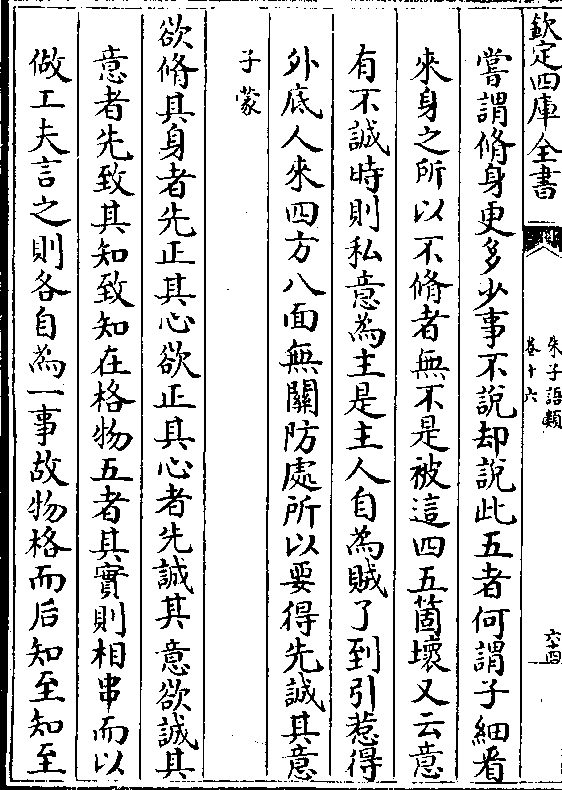 欽定四庫全書
朱子語類
卷十六
六十四
嘗謂脩身更多少事不說却說此五者何謂子細看
來身之所以不脩者無不是被這四五箇壞又云意
有不誠時則私意為主是主人自為賊了到引惹得
外底人來四方八面無關防處所以要得先誠其意
子蒙
欲脩其身者先正其心欲正其心者先誠其意欲誠其
意者先致其知致知在格物五者其實則相串而以
做工夫言之則各自為一事故物格而后知至知至